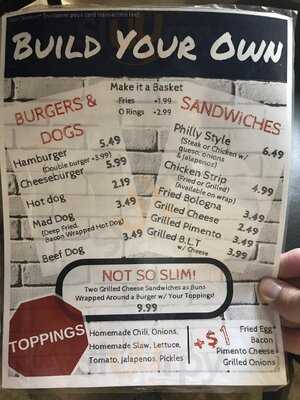 BUILD YOUR OWN
Make it a Basket
Fries +1.99
O Rings +2.99
BURGERS &
DOGS
Hamburger 5.49
(Double burger +3.99)
Cheeseburger 5.99
Hot dog 2.19
Mad Dog 3.49
(Deep Fried,
Bacon Wrapped Hot Dog)
Beef Dog 3.49
SANDWICHES
Philly Style 6.49
(Steak or Chicken w/
queso, onions
& jalapenos)
Chicken Strip 4.99
(Fried or Grilled)
(Available on wrap)
Fried Bologna 3.49
Grilled Cheese 2.49
Grilled Pimento 3.49
Grilled B.L.T 3.99
w/ Cheese
NOT SO SLIM!
Two Grilled Cheese Sandwiches as Buns
Wrapped Around a Burger w/ Your Toppings!
9.99
TOPPINGS
Homemade Chili, Onions,
Homemade Slaw, Lettuce,
Tomato, Jalapenos, Pickles
+$1
Fried Egg
Bacon
Pimento Cheese
Grilled Onions